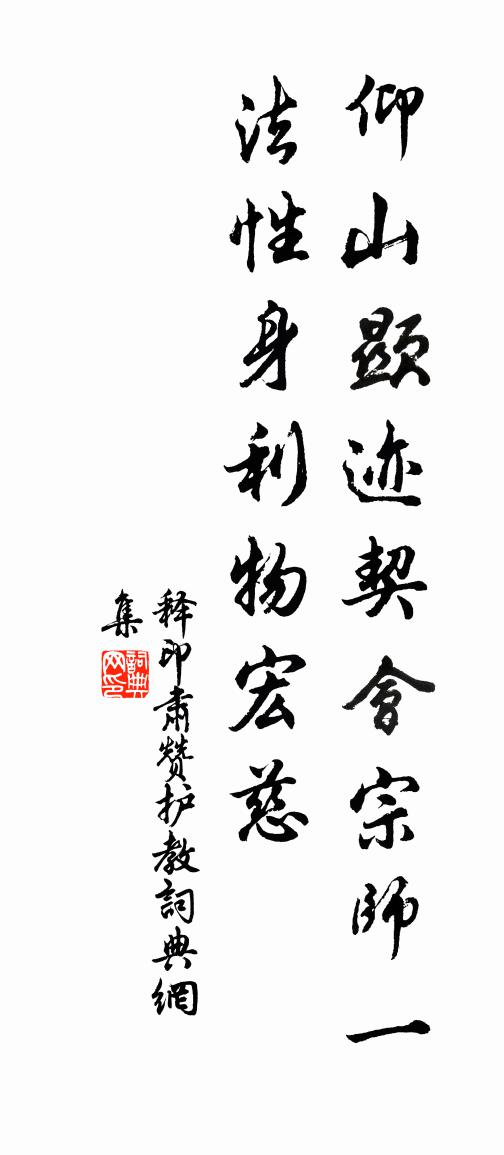 仰山顕迹契會宗师一
法性身利物宏慈
释印肃赞护教詞典網
集
詞典
网印